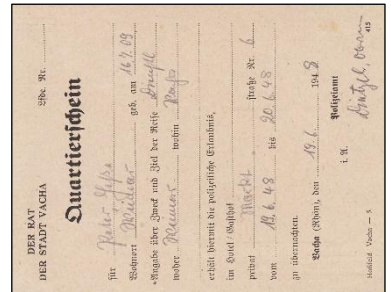 DER RAT
DER STADT VACHA
Lfde. Nr.
Quartierschein
für Peter
Wohnort geb. am 16.7.09
*Angabe über Zweck und Ziel der Reise
woher wohin
erhält hiermit die polizeiliche Erlaubnis,
im Hotel / Gasthof
privat Markt straße Nr. 6
vom 19.6.48 bis 20.6.48
zu übernachten.
Vacha (Rhön), den 19.6. 1948
Polizeiamt
i. A.
Hoßfeld, Vacha — 5 415